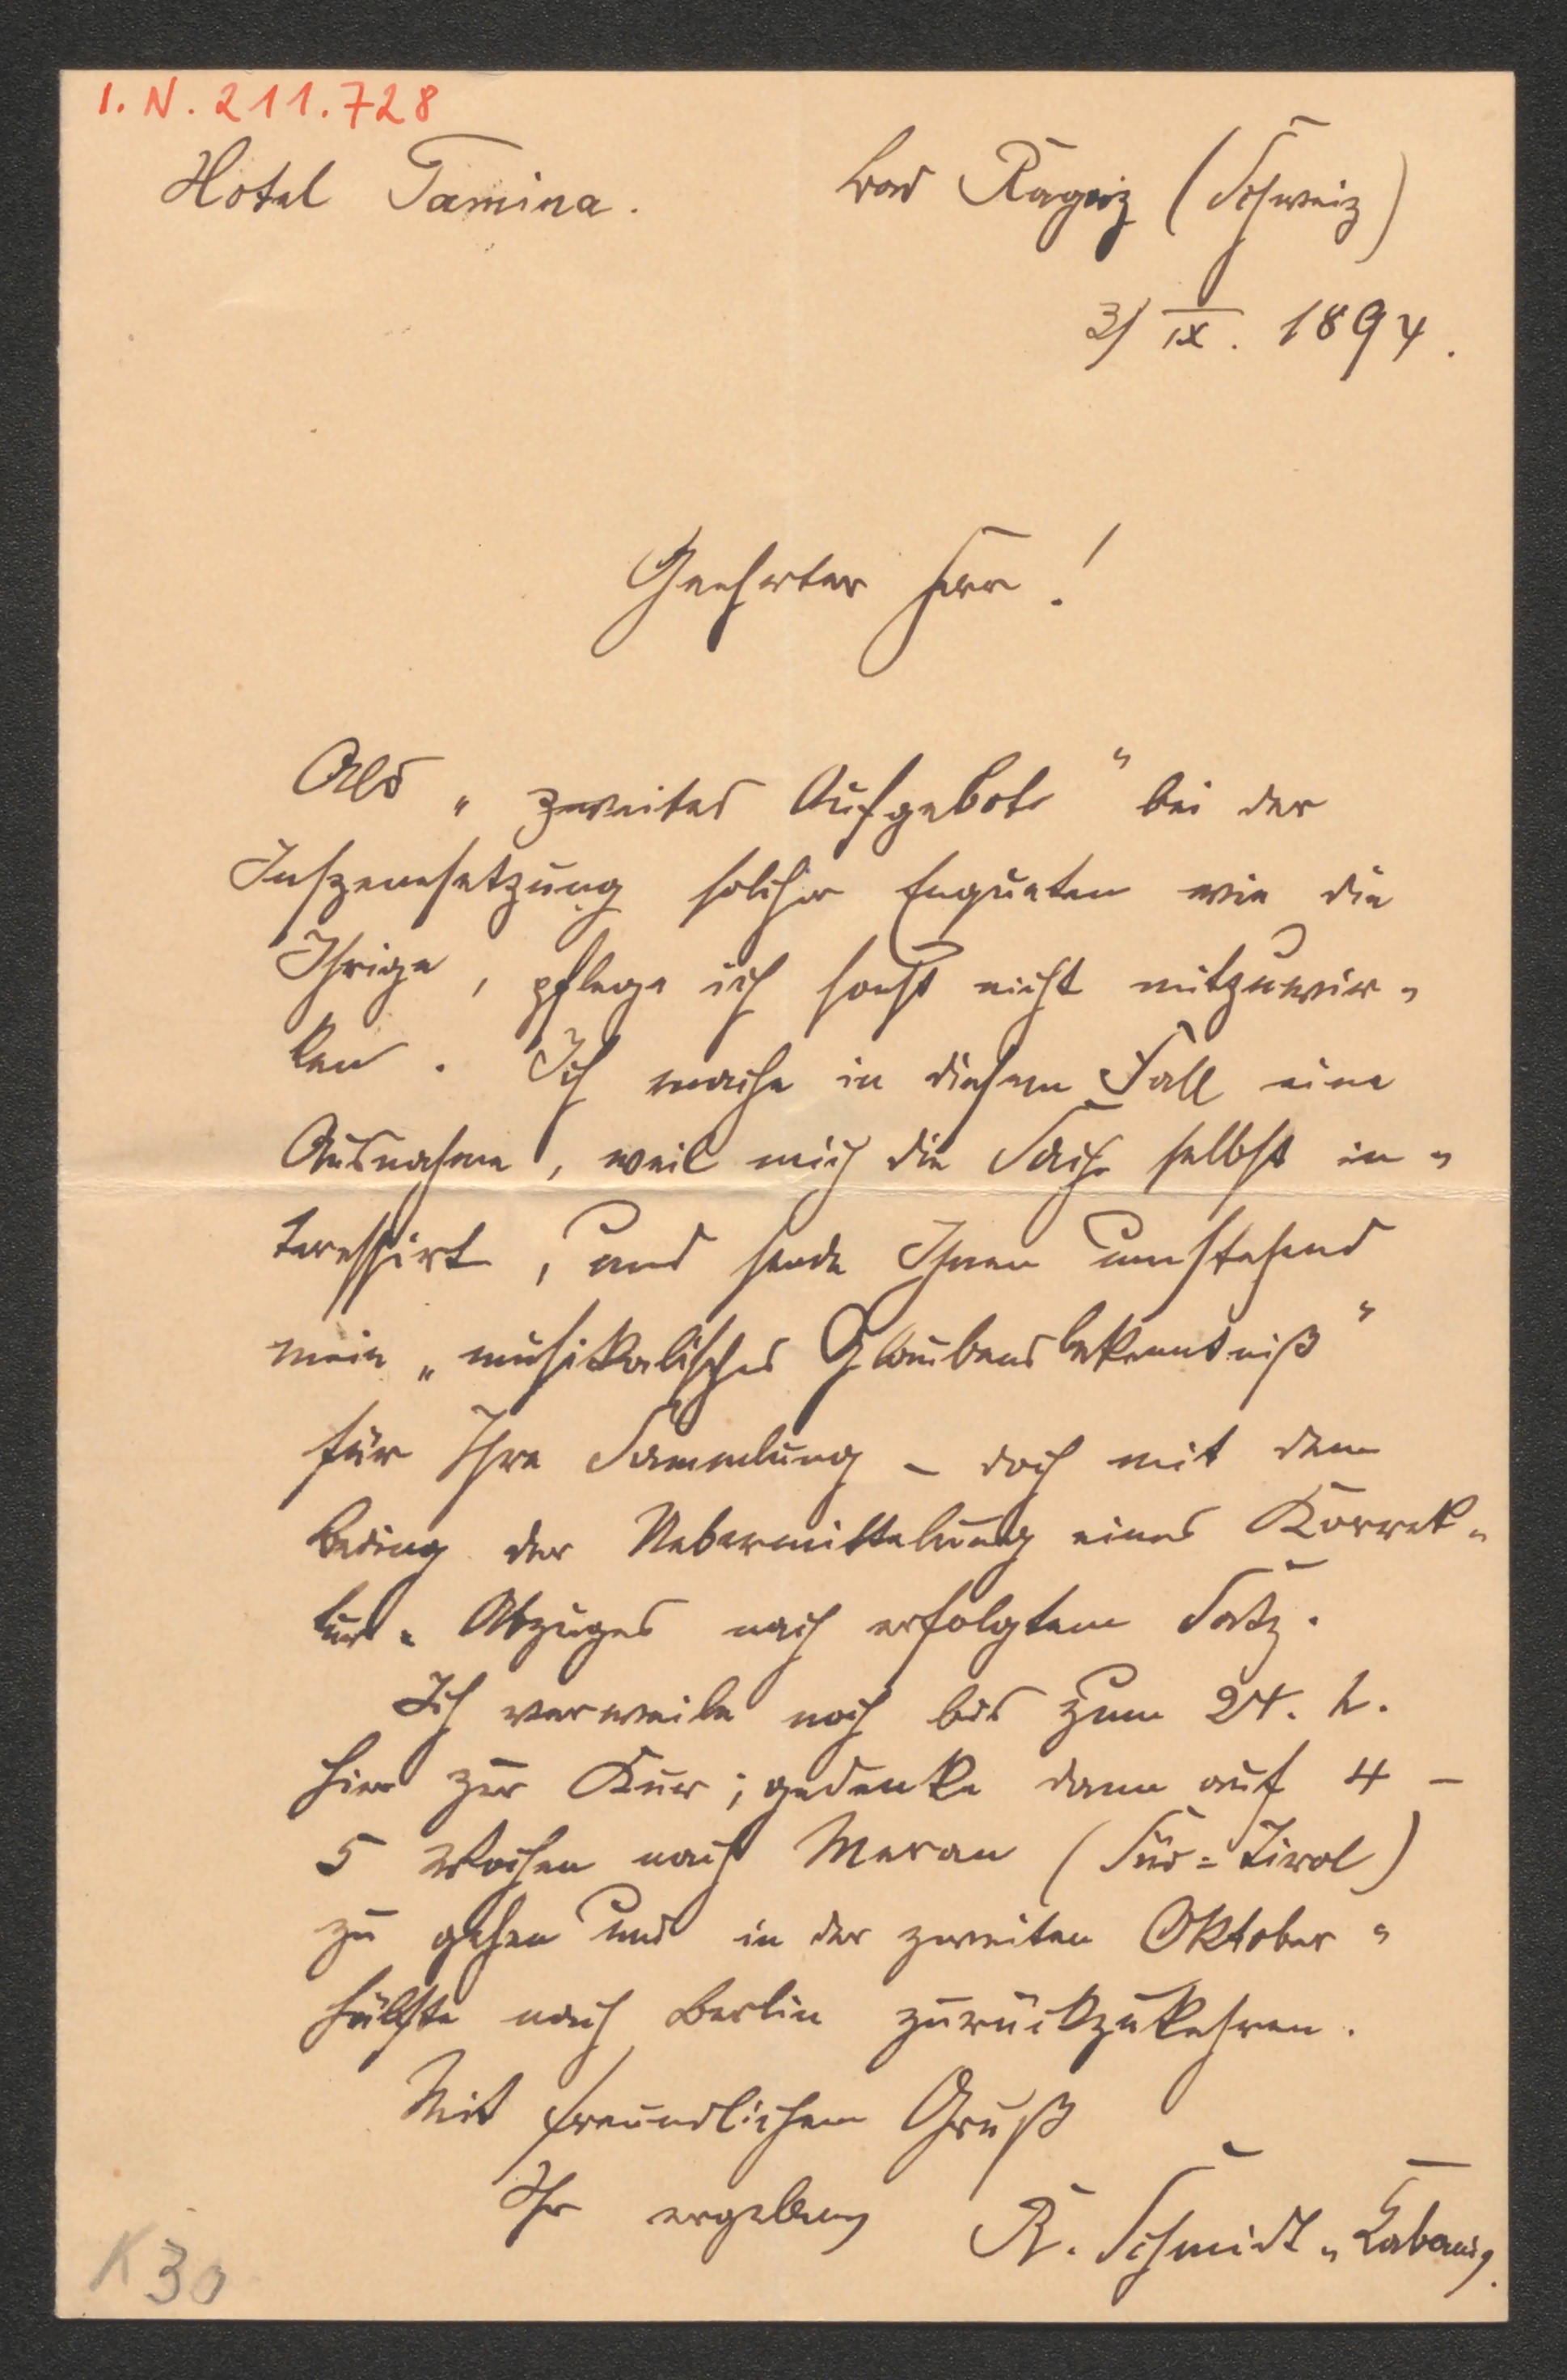 I.N.211.728
Hotel Tamina. Bad Ragaz (Schweiz)
3/IX. 1894.
Geehrter Herr!
Als „zweites Aufgebot“ bei der
Inszenesetzung solcher Enqueten wie die
Ihrige, pflege ich sonst nicht mitzuwir-
ken. Ich mache in diesem Fall eine
Ausnahme, weil mich die Sache selbst in-
teressirt, und sende Ihnen umstehend
mein „musikalisches Glaubensbekenntniß“
für Ihre Sammlung – doch mit dem
Beding der Uebermittelung eines Korrek-
tur-Abzuges nach erfolgtem Satz.
Ich verweile noch bis zum 24. h.
hier zur Kur; gedenke dann auf 4 –
5 Wochen nach Meran (Süd=Tirol)
zu gehen und in der zweiten Oktober-
hälfte nach Berlin zurückzukehren.
Mit freundlichem Gruß
Ihr ergebener R. Schmidt-Cabanis.
K 30